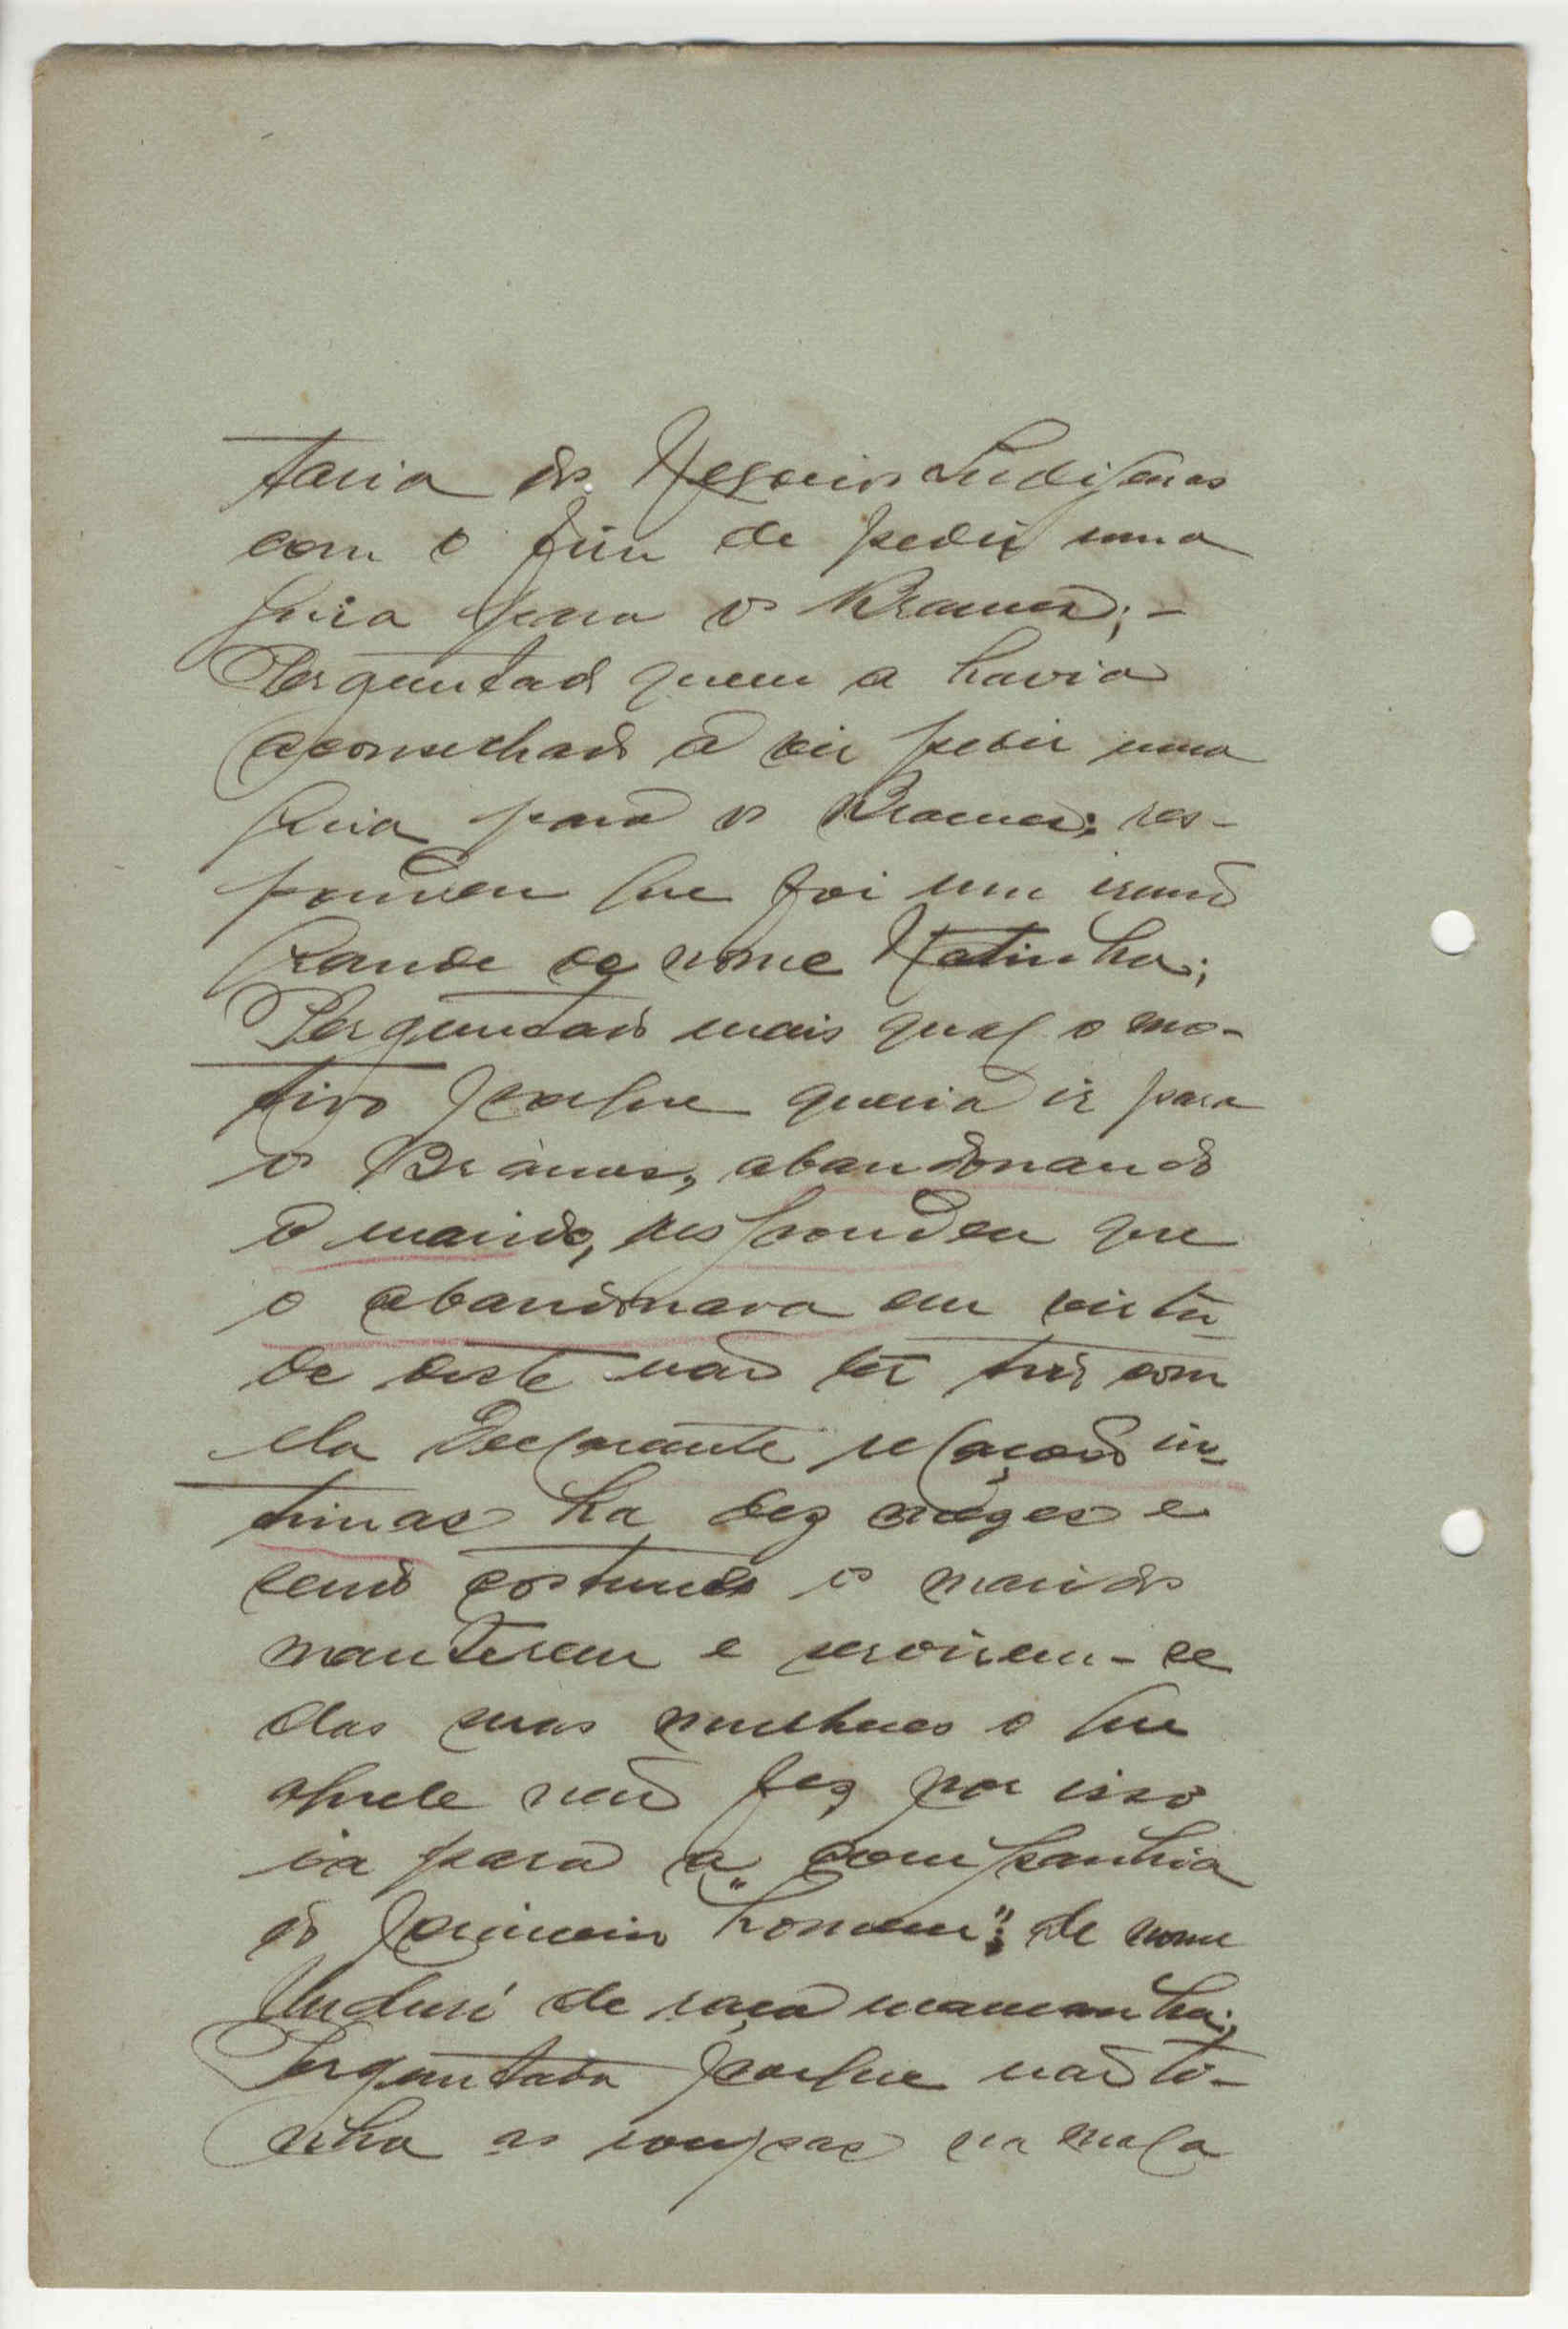 taria dos Negocios Indigenas
com o fim de pedir uma
guia para o Brame; -
Perguntado quem a havia
aconselhado a vir pedir uma
guia para o Brame; res-
pondeu que foi um irmão
grande de nome Natinha;
Perguntado mais qual o mo-
tivo porque queria ir para
o Brame, abandonando
o marido, respondeu que
o abandonava em virtu-
de deste não ter tido com
ela declarante relações in-
timas ha dez mezes e
sendo costume os maridos
manterem e servirem-se
das suas mulheres o que
aquele não fez por isso
ia para a companhia
do primeiro "homem"; de nome
de raça
Perguntada porque não ti-
nha as roupas na mala